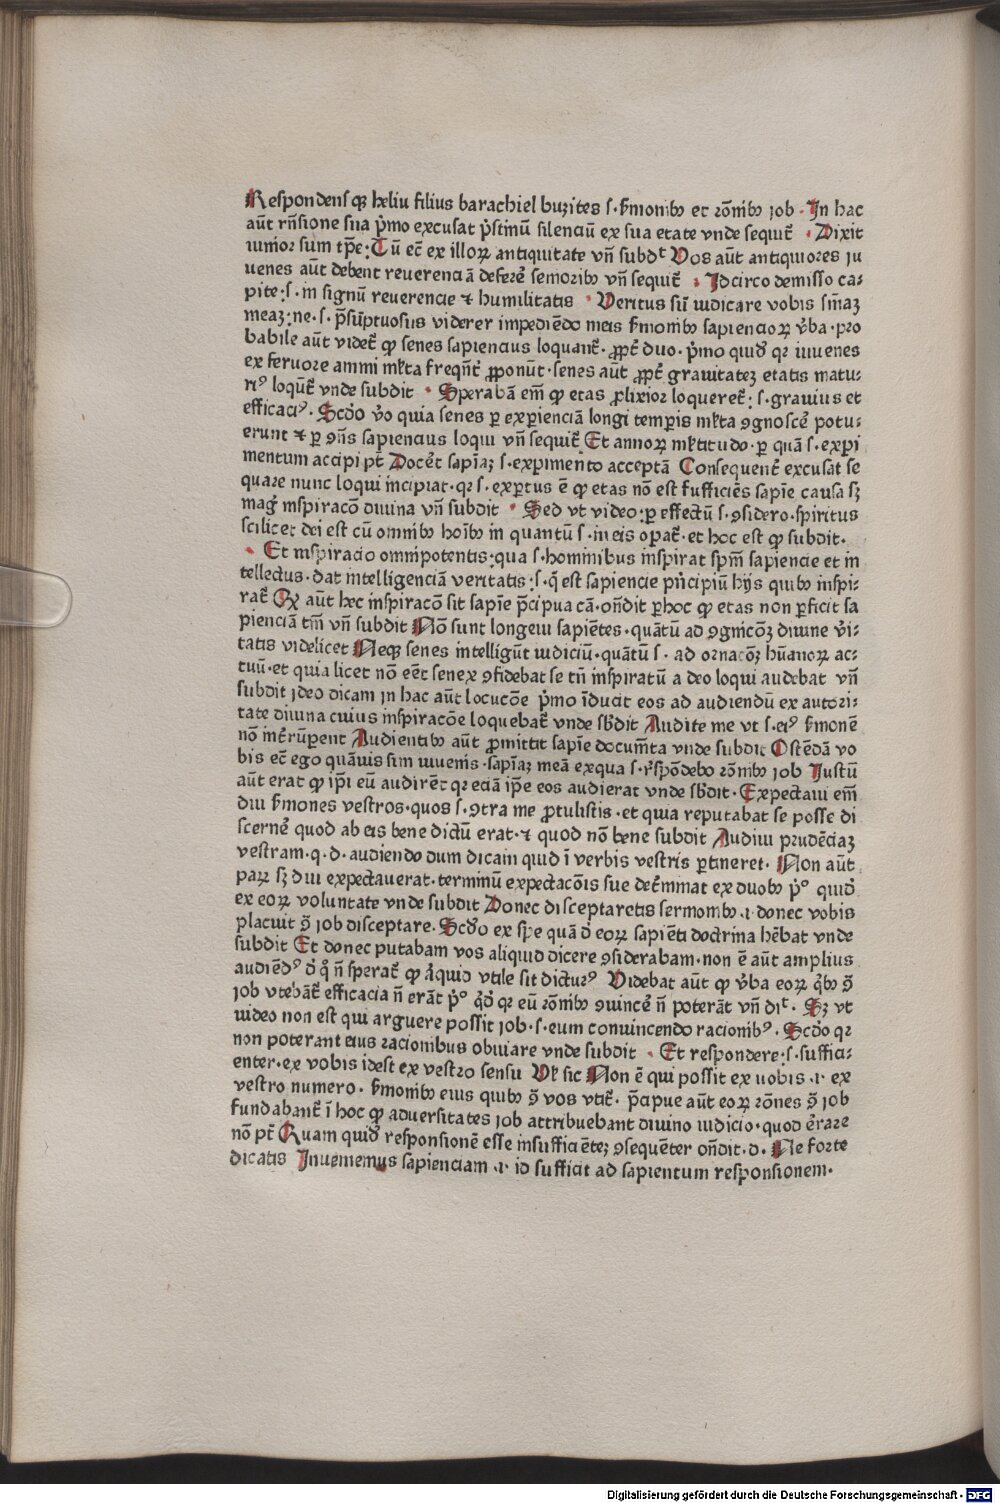 Respondens qȝ heliu filius barachiel buzites s. ẜmonibꝯ et rōnibꝯ job · In hac
aūt rn̄sione sua pͥmo excusat pͥstinū silenciū ex sua etate vnde sequit̄ · Dixit
iunior sum tꝑe: Tū ec̄ ex illoꝝ antiquitate vn̄ subdᵗ Vos aūt antiquiores iu
uenes aūt debent reuerenciā deferē senioribꝯ vn̄ sequit̄ · Idcirco demisso ca⸗
pite: s. in signū reuerencie ⁊ humilitatis · Veritus sū iudicare vobis sn̄iaȝ
meaȝ: ne. s. p̄sūptuosus viderer impediēdo meis ẜmonibꝯ sapiencioꝝ v̓ba. pro
babile aūt videt̄ ꝙ senes sapiencius loquant̄. ꝓpt̄ duo. pͥmo quid̓ qr iuuenes
ex feruore animi ml̓ta freqn̄t̄ ꝓponūt. senes aūt ꝓpt̄ grauitateȝ etatis matu⸗
riꝰ loqūt̄ vnde subdit · Sperabā em̄ ꝙ etas ꝓlixior loqueret̄: s. grauius et
efficaciꝰ. Scd̓o v̓o quia senes ꝑ exꝑienciā longi temꝑis ml̓ta ꝯgnoscē potu⸗
erunt ⁊ ꝑ ꝯn̄s sapiencius loqui vn̄ sequit̄ Et annoꝝ ml̓titudo. ꝑ quā s. exꝑi
mentum accipi pt̄ Docēt sapīaȝ s. exꝑimento acceptā Consequent̄ excusat se
quare nunc loqui incipiat. qr s. exꝑtus ē ꝙ etas nō est sufficiēs sapīe causa sȝ
mag̓ inspiracō diuina vn̄ subdit · Sed vt video: ꝑ effectū s. ꝯsidero. spiritus
scilicet dei est cū omnibꝯ hoībꝯ in quantū s. in eis oꝑat̄. et hoc est ꝙ subdit.
· Et inspiracio omnipotentis: qua s. hominibus inspirat spm̄ sapiencie et in
tellectus. dat intelligenciā veritatis: s. q̄ est sapiencie pͥncipiū hijs quibꝯ inspi⸗
rat̄ Qꝙ aūt hec inspiracō sit sapīe p̄cipua cā. on̄dit ꝑ hoc ꝙ etas non ꝑficit sa
pienciā tm̄ vn̄ subdit Nō sunt longeui sapiētes. quātū ad ꝯgnicōȝ diuine v̓i⸗
tatis videlicet Neqȝ senes intelligūt iudiciū. quātū s. ad ornacōȝ hūanoꝝ ac⸗
tuū. et quia licet nō eēt senex ꝯfidebat se tn̄ inspiratū a deo loqui audebat vn̄
subdit ideo dicam in hac aūt locucōe pͥmo īducit eos ad audiendū ex autori⸗
tate diuina cuius inspiracōe loquebat̄ vnde sb̓dit Audite me vt s. eiꝰ ẜmonē
nō int̓rūperent Audientibꝯ aūt ꝓmittit sapīe documt̄a vnde subdit Ostēdā vo
bis ec̄ ego quāuis sim iuuenis. sapīaȝ meā ex qua s. r̓spōdebo rōnibꝯ job Justū
aūt erat ꝙ ip̄i eū audirēt qr eciā ip̄e eos audierat vnde sb̓dit. Expectaui em̄
diu ẜmones vestros. quos s. ꝯtra me ꝓtulistis. et quia reputabat se posse di
scernē quod ab eis bene dictū erat. ⁊ quod nō bene subdit Audiui prudēciaȝ
vestram. q. d. audiendo dum dicam quid ī verbis vestris ꝑtineret. Non aūt
paꝝ sȝ diu expectauerat. terminū expectacōis sue det̓minat ex duobꝯ pͥ° quid̓
ex eoꝝ voluntate vnde subdit Donec disceptaretis sermonibꝯ .i. donec vobis
placuit ꝯ̄ job disceptare. Scd̓o ex spe quā d̓ eoꝝ sapiēti doctrina hēbat vnde
subdit Et donec putabam vos aliquid dicere ꝯsiderabam. non ē aūt amplius
audiēdꝰ d̓ q̓ n̄ sperat̄ ꝙ aͥquid vtile sit dicturꝰ Videbat aūt ꝙ v̓ba eoꝝ qͥbꝯ ꝯ̄
job vtebāt̄ efficacia n̄ erāt pͥ° qͥd̓ qr eū rōnibꝯ ꝯuincē n̄ poterāt vn̄ diᵗ. Sȝ vt
video non est qui arguere possit job. s. eum conuincendo racionibꝰ. Scd̓o qr
non poterant eius racionibus obuiare vnde subdit · Et respondere: s. suffici⸗
enter. ex vobis idest ex vestro sensu Vl̓ sic Non ē qui possit ex uobis .i. ex
vestro numero. ẜmonibꝯ eius quibꝯ ꝯ̄ vos vtit̄. p̄cipue aūt eoꝝ rōnes ꝯ̄ job
fundabant̄ ī hoc ꝙ aduersitates job attribuebant diuino iudicio. quod ērare
nō pt̄ Quam quid̓ responsionē esse insufficiētēȝ ꝯsequēter on̄dit. d. Ne forte
dicatis Inuenimus sapienciam .i. id sufficit ad sapientum responsionem.
Digitalisierung gefördert durch die Deutsche Forschungsgemeinschaft - DFG